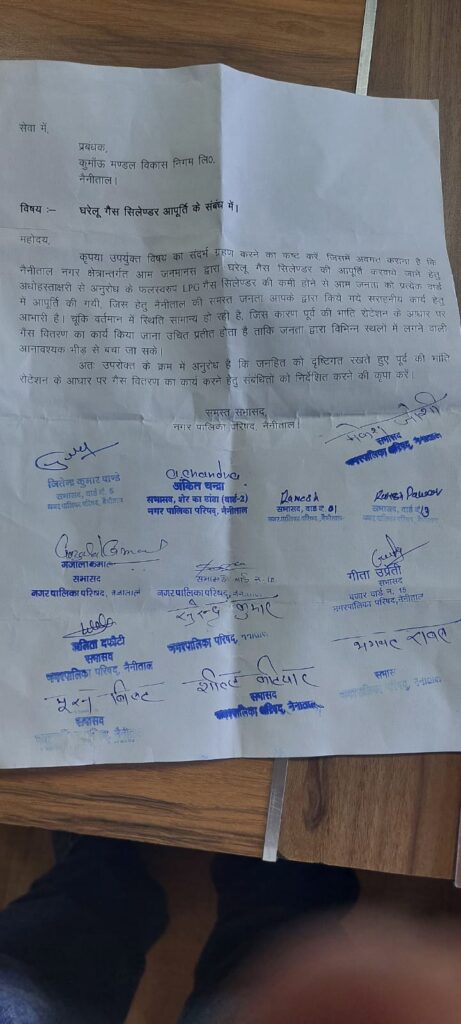 सेवा में,
प्रबंधक,
कुमाँऊ मण्डल विकास निगम लि0,
नैनीताल।
विषय :– घरेलू गैस सिलेण्डर आपूर्ति के संबंध में।
महोदय,
कृपया उपर्युक्त विषय का संदर्भ ग्रहण करने का कष्ट करें, जिसमें अवगत कराना है कि
नैनीताल नगर क्षेत्रान्तर्गत आम जनमानस द्वारा घरेलू गैस सिलेण्डर की आपूर्ति कराये जाने हेतु
अधोहस्ताक्षरी से अनुरोध के फलस्वरूप LPG गैस सिलेण्डर की कमी होने से आम जनता को प्रत्येक वार्ड
में आपूर्ति की गयी, जिस हेतु नैनीताल की समस्त जनता आपके द्वारा किये गये सराहनीय कार्य हेतु
आभारी है। चूंकि वर्तमान में स्थिति सामान्य हो रही है, जिस कारण पूर्व की भांति रोटेशन के आधार पर
गैस वितरण का कार्य किया जाना उचित प्रतीत होता है ताकि जनता द्वारा विभिन्न स्थलों में लगने वाली
अनावश्यक भीड़ से बचा जा सके।
अतः उपरोक्त के क्रम में अनुरोध है कि जनहित को दृष्टिगत रखते हुए पूर्व की भांति
रोटेशन के आधार पर गैस वितरण का कार्य करने हेतु संबंधितों को निर्देशित करने की कृपा करें।
समस्त सभासद,
नगर पालिका परिषद, नैनीताल।
जोशी
सभासद
नगरपालिका परिषद, नैनीताल
जितेन्द्र कुमार पाण्डे
सभासद, वार्ड नं. 5
नगर पालिका परिषद, नैनीताल
अंकित चन्द्रा
सभासद, शेर का डांडा (वार्ड-2)
नगर पालिका परिषद, नैनीताल
Ramesh
सभासद, वार्ड नं. 01
नगर पालिका परिषद, नैनीताल
सभासद, वार्ड नं.
नगर पालिका परिषद, नैनीताल
गजाला कमाल
सभासद
नगर पालिका परिषद, नैनीताल
सभासद वार्ड नं. 10
नगर पालिका परिषद, नैनीताल
गीता उप्रेती
सभासद
वार्ड नं. 15
नगरपालिका परिषद, नैनीताल
सभासद
नगरपालिका परिषद, नैनीताल
कुमार
नगरपालिका परिषद, नैनीताल
भगवत रावत
सभासद
नगरपालिका परिषद, नैनीताल
सभासद
नगरपालिका परिषद, नैनीताल
सभासद
नगरपालिका परिषद, नैनीताल